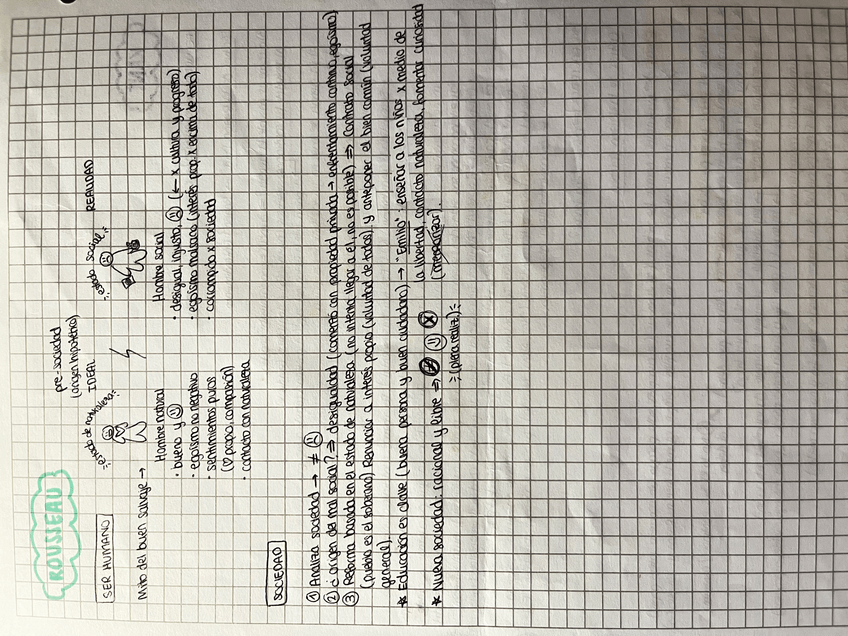 ROUSSEAU
SER HUMANO
pre-sociedad
(origen hipotético)
IDEAL
REALIDAD
"estado de naturaleza"
"estado social"
Mito del buen salvaje →
Hombre natural
• bueno y :)
• egoísmo no negativo
• sentimientos puros
(♡ propio, compasión)
• contacto con naturaleza
Hombre social
• desigual, injusto, :( (← x cultura y progreso)
• egoísmo malsano (interés prop. x encima de todo)
• corrompido x sociedad
SOCIEDAD
① Analiza sociedad → ≠ :(
② ¿origen del mal social? ⇒ desigualdad (comenzó con propiedad privada → enfrentamiento continuo, egoísmo)
③ Reforma basada en el estado de naturaleza (no intenta llegar a él, no es posible) ⇒ Contrato social
(pueblo es el soberano) Renunciar a interés propio (voluntad de todos) y anteponer el bien común (voluntad
general).
* Educación es clave (buena persona y buen ciudadano) → "Emilio": enseñar a los niños x medio de
la libertad, contacto naturaleza, fomentar curiosidad
(memorizar).
* Nueva sociedad: racional y libre ⇒ :)
(plena realiz.)